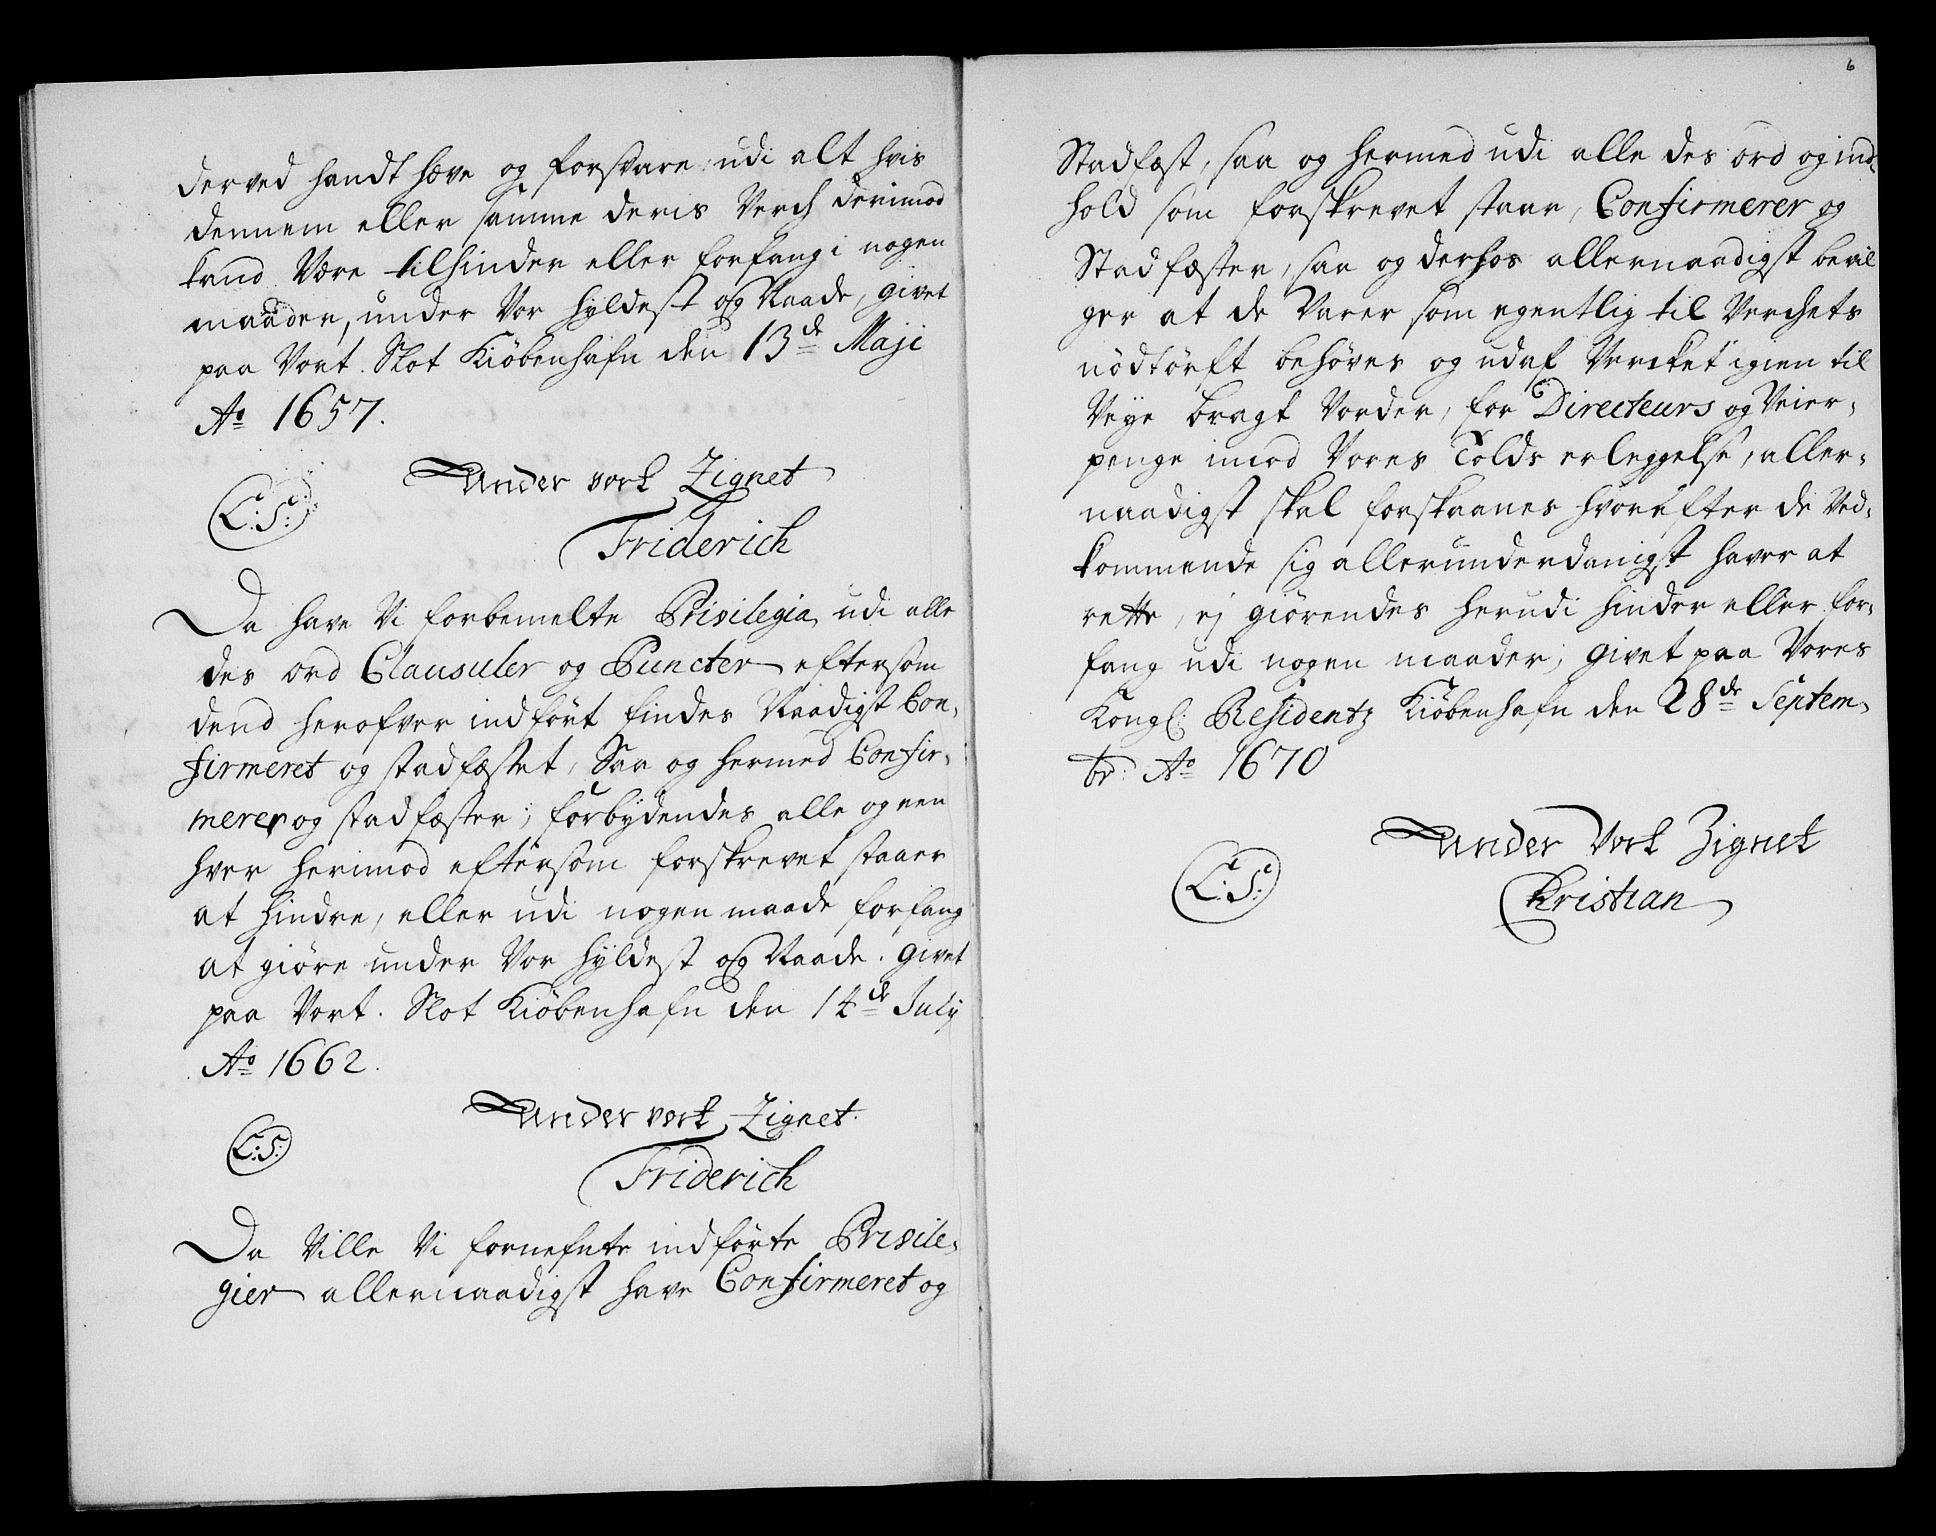 derved handthæve og forsvare, udi alt hvis
dennem eller samme deris Verch derimod
kand Være tilhinder eller forfang i nogen
maader, under Vor hyldest og Naade, givet
paa Vort Slot Kiöbenhafn den 13de Maji
Ao 1657.
Under vort Zignet
L:S:
Friderich
Da have Vi forbemelte Privilegia, udi alle
des ord Clausuler og Puncter eftersom
dend herofver indfört findes Naadigst Con-
firmeret og stadfæstet, Saa og hermed Confir-
merer og stadfæster, forbydendes alle og een
hver herimod eftersom forskrevet staaer
at hindre, eller udi nogen maade forfang
at giöre under Vor hyldest og Naade. Givet
paa Vort Slot Kiöbenhafn den 14de July
Ao 1662.
Under vort Zignet
L:S:
Friderich
Da Ville Vi fornefnte indförte Privile-
gier allernaadigst have Confirmeret og
6
Stadfæst, saa og hermed udi alle des ord og ind-
hold som forskrevet staar, Confirmerer og
Stadfæster, saa og derhos allernaadigst bevil
ger at de Varer som egentlig til Verchets
nödtörft behöves og udaf Vercket igien til
Veye bragt Vorder, for Directeurs og Veier-
penge imod Vores Tolds erleggelse, aller-
naadigst skal forskaanes hvorefter de Ved-
kommende sig allerunderdanigst haver at
rette, ej giörendes herudi hinder eller for-
fang udi nogen maader, givet paa Vores
Kongl: Residentz Kiöbenhafn den 28de Septem-
br: Ao 1670
Under Vort Zignet
L:S:
Christian